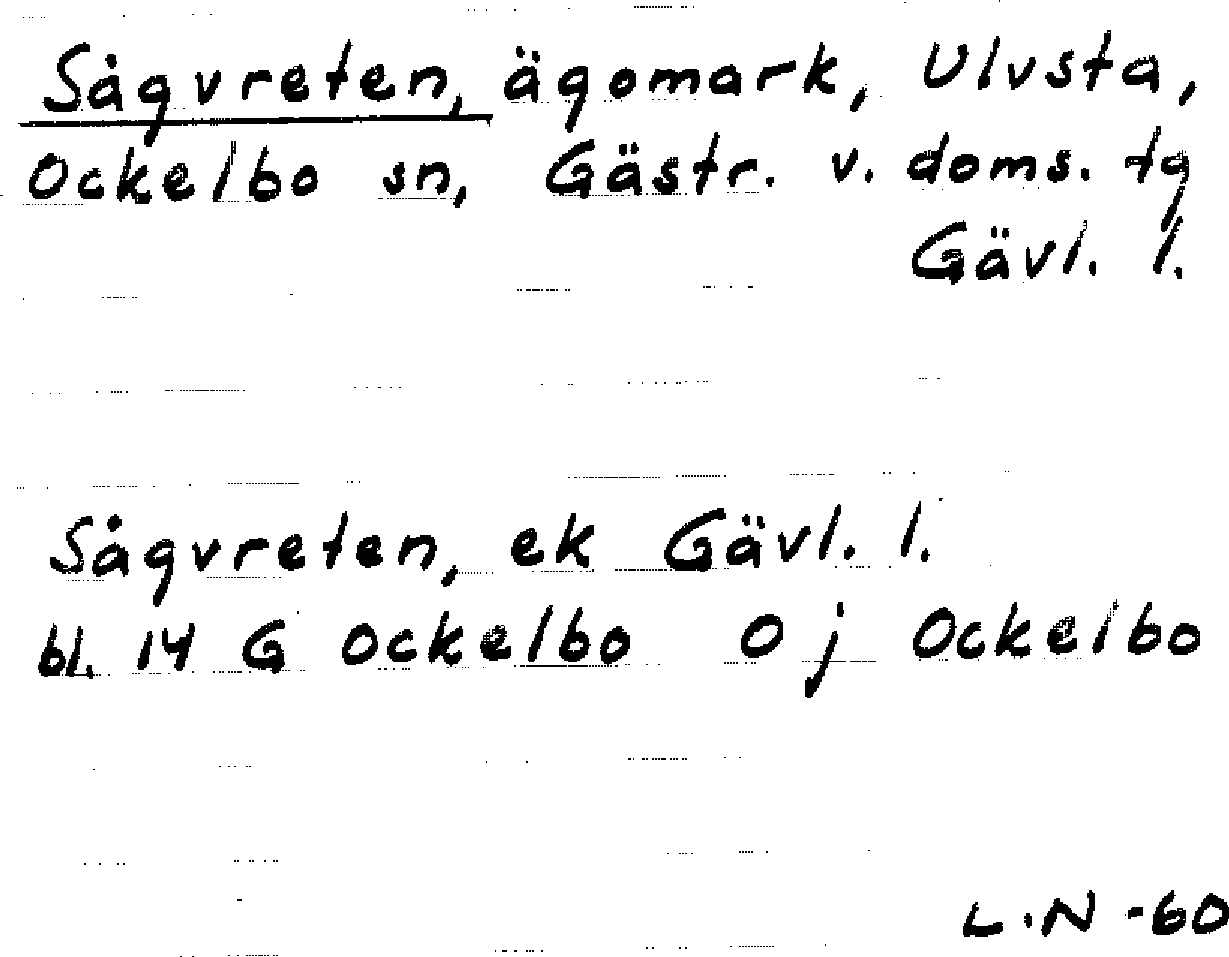 Sågvreten, ägomark, Ulvsta,
Ockelbo sn, Gästr. v. doms. tg
Gävl. l.
Sågvreten, ek Gävl. l.
bl. 14 G Ockelbo O j Ockelbo
L.N -60